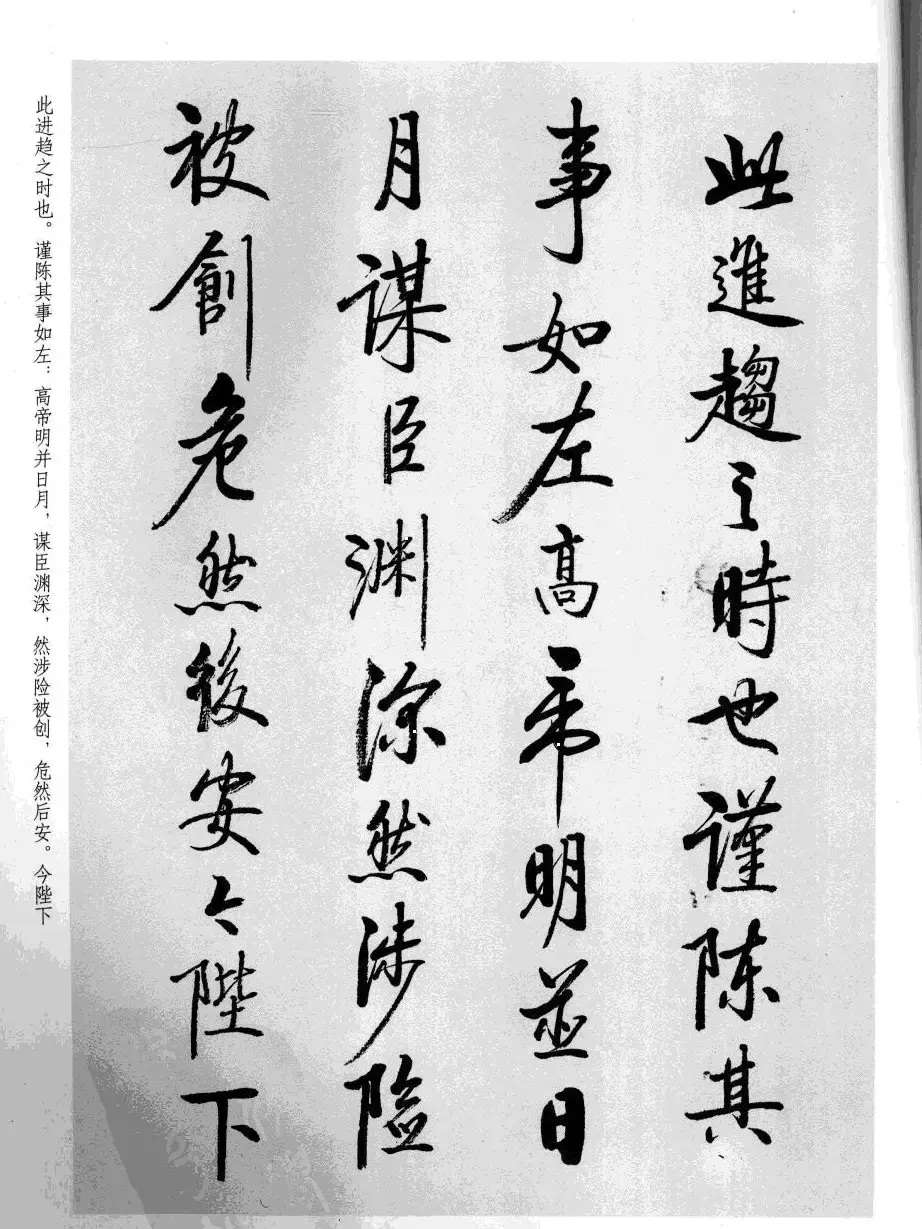 此進趨之時也謹陳其
事如左高帝明並日
月謀臣渊深然涉險
被創危然後安今陛下
此进趋之时也。谨陈其事如左：高帝明并日月，谋臣渊深，然涉险被创，危然后安。今陛下